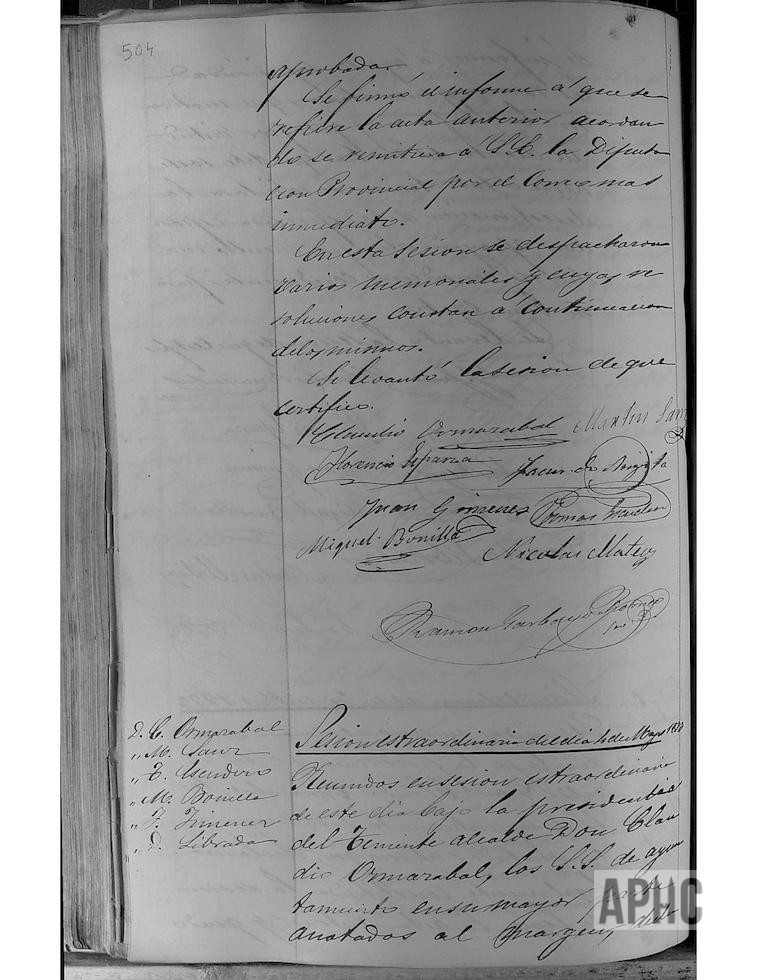 504
aprobada.
Se firmó el informe á que se
refiere la acta anterior acordan
do se remitiera á S.E. la Diputa
cion Provincial por el Correo mas
inmediato.
En esta Sesion se despacharon
varios memoriales y cuyas re
soluciones constan á continuacion
de los mismos.
Se levantó la sesion de que
certifico.
Claudio Ormarabal Martin Sanz
Florencio Esparza
Juan Gimenez Tomas
Miguel Bonilla Nicolas Mateo
Ramon
D. C. Ormarabal
" M. Sanz
" T. Escudero
" M. Bonilla
" J. Jimenez
" D. Librada
Sesion estraordinaria del dia 4 de Mayo 1873
Reunidos en sesion estraordinaria
de este dia bajo la presidencia
del Teniente alcalde Don Clau
dio Ormarabal, los S.S. de ayun
tamiento en su mayor parte
anotados al margen,
APHC